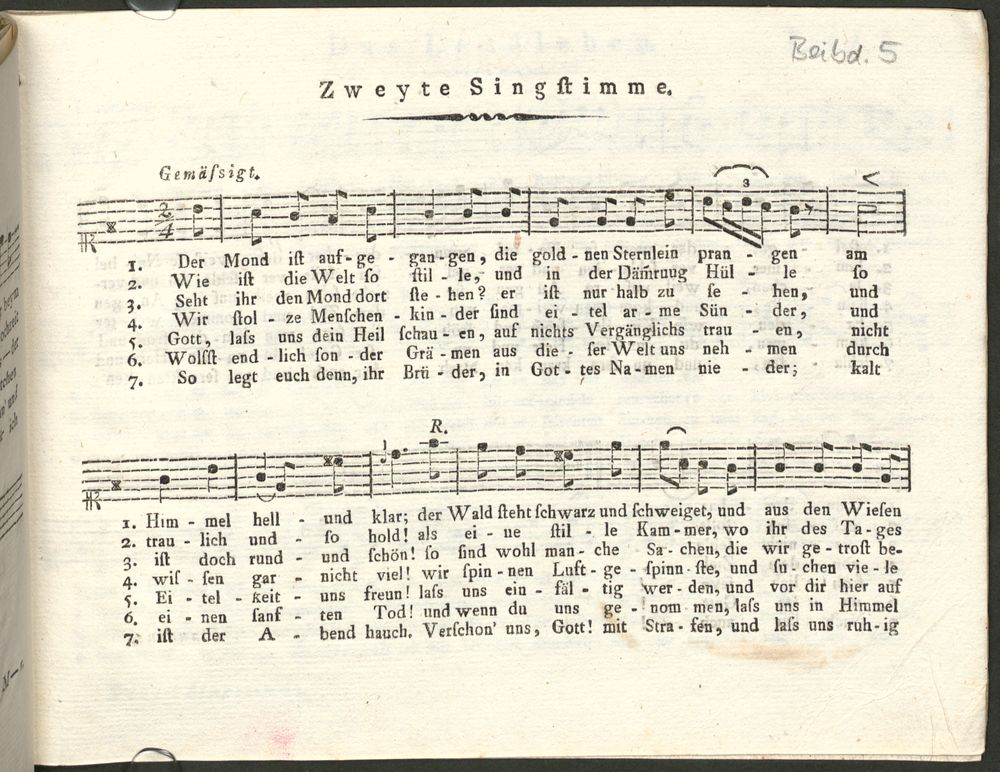 Beibd. 5
Zweyte Singſtimme.
Gemäſsigt.
2/4
3
1. Der Mond iſt auf-ge - gan-gen, die gold-nen Sternlein pran - gen am
2. Wie iſt die Welt ſo ſtil - le, und in der Däm̃rung Hül - le ſo
3. Seht ihr den Mond dort ſte - hen? er iſt nur halb zu ſe - hen, und
4. Wir ſtol - ze Menſchen - kin - der ſind ei - tel ar - me Sün - der, und
5. Gott, laſs uns dein Heil ſchau - en, auf nichts Vergänglichs trau - en, nicht
6. Wollſt end - lich ſon - der Grä - men aus die - ſer Welt uns neh - men durch
7. So legt euch denn, ihr Brü - der, in Got - tes Na - men nie - der; kalt
R.
1. Him - mel hell - und klar; der Wald ſteht ſchwarz und ſchweiget, und aus den Wieſen
2. trau - lich und - ſo hold! als ei - ne ſtil - le Kam - mer, wo ihr des Ta - ges
3. iſt doch rund - und ſchön! ſo ſind wohl man - che Sa - chen, die wir ge - troſt be-
4. wiſ - ſen gar - nicht viel! wir ſpin - nen Luft - ge - ſpinn - ſte, und ſu - chen vie - le
5. Ei - tel - keit - uns freun! laſs uns ein - fäl - tig wer - den, und vor dir hier auf
6. ei - nen ſanf - ten Tod! und wenn du uns ge - nom - men, laſs uns in Himmel
7. iſt der A - bend hauch. Verſchon' uns, Gott! mit Stra - fen, und laſs uns ruh - ig